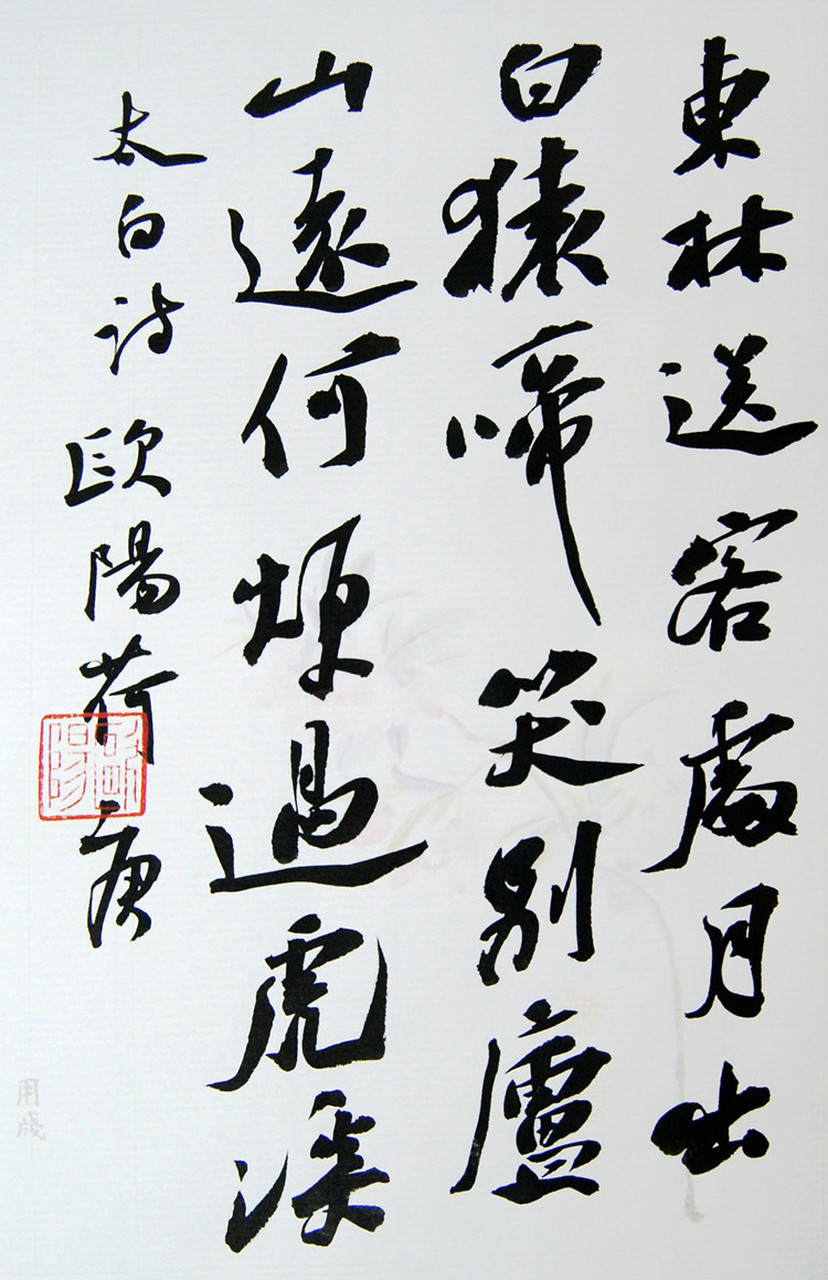 東林送客處月出
白猿啼笑別廬
山遠何煩過虎溪
太白詩歐陽荷庚
歐陽
用牋